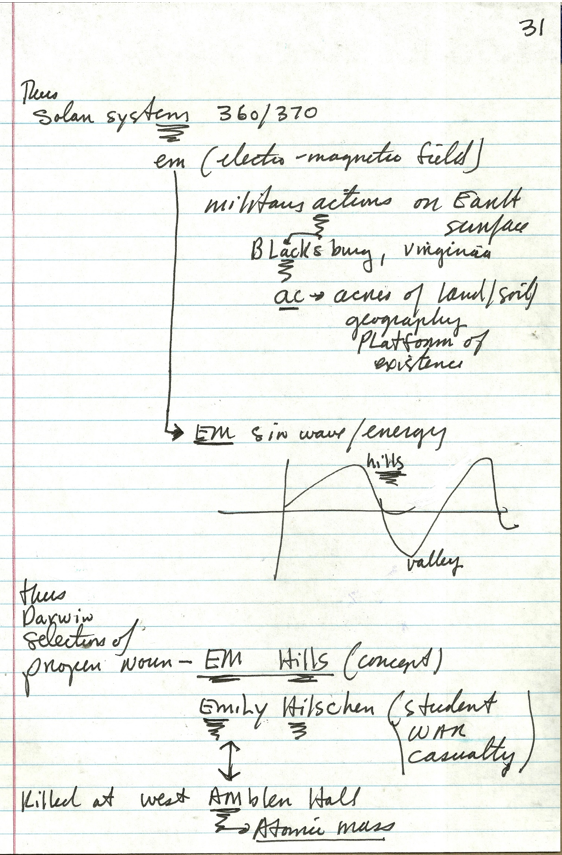 31
Thus
Solar system 360/370
em (electro-magnetic field)
militaus actions on Earth
surface
Blacksburg, Virginia
ac → acres of land/soil/
geography
Platform of
existence
EM sin wave/energy
hills
valley
thus
Darwin
selection of
proper noun - EM Hills (concept)
Emily Hilscher (student
WAR
casualty)
Killed at west AMbler Hall
Atomic mass